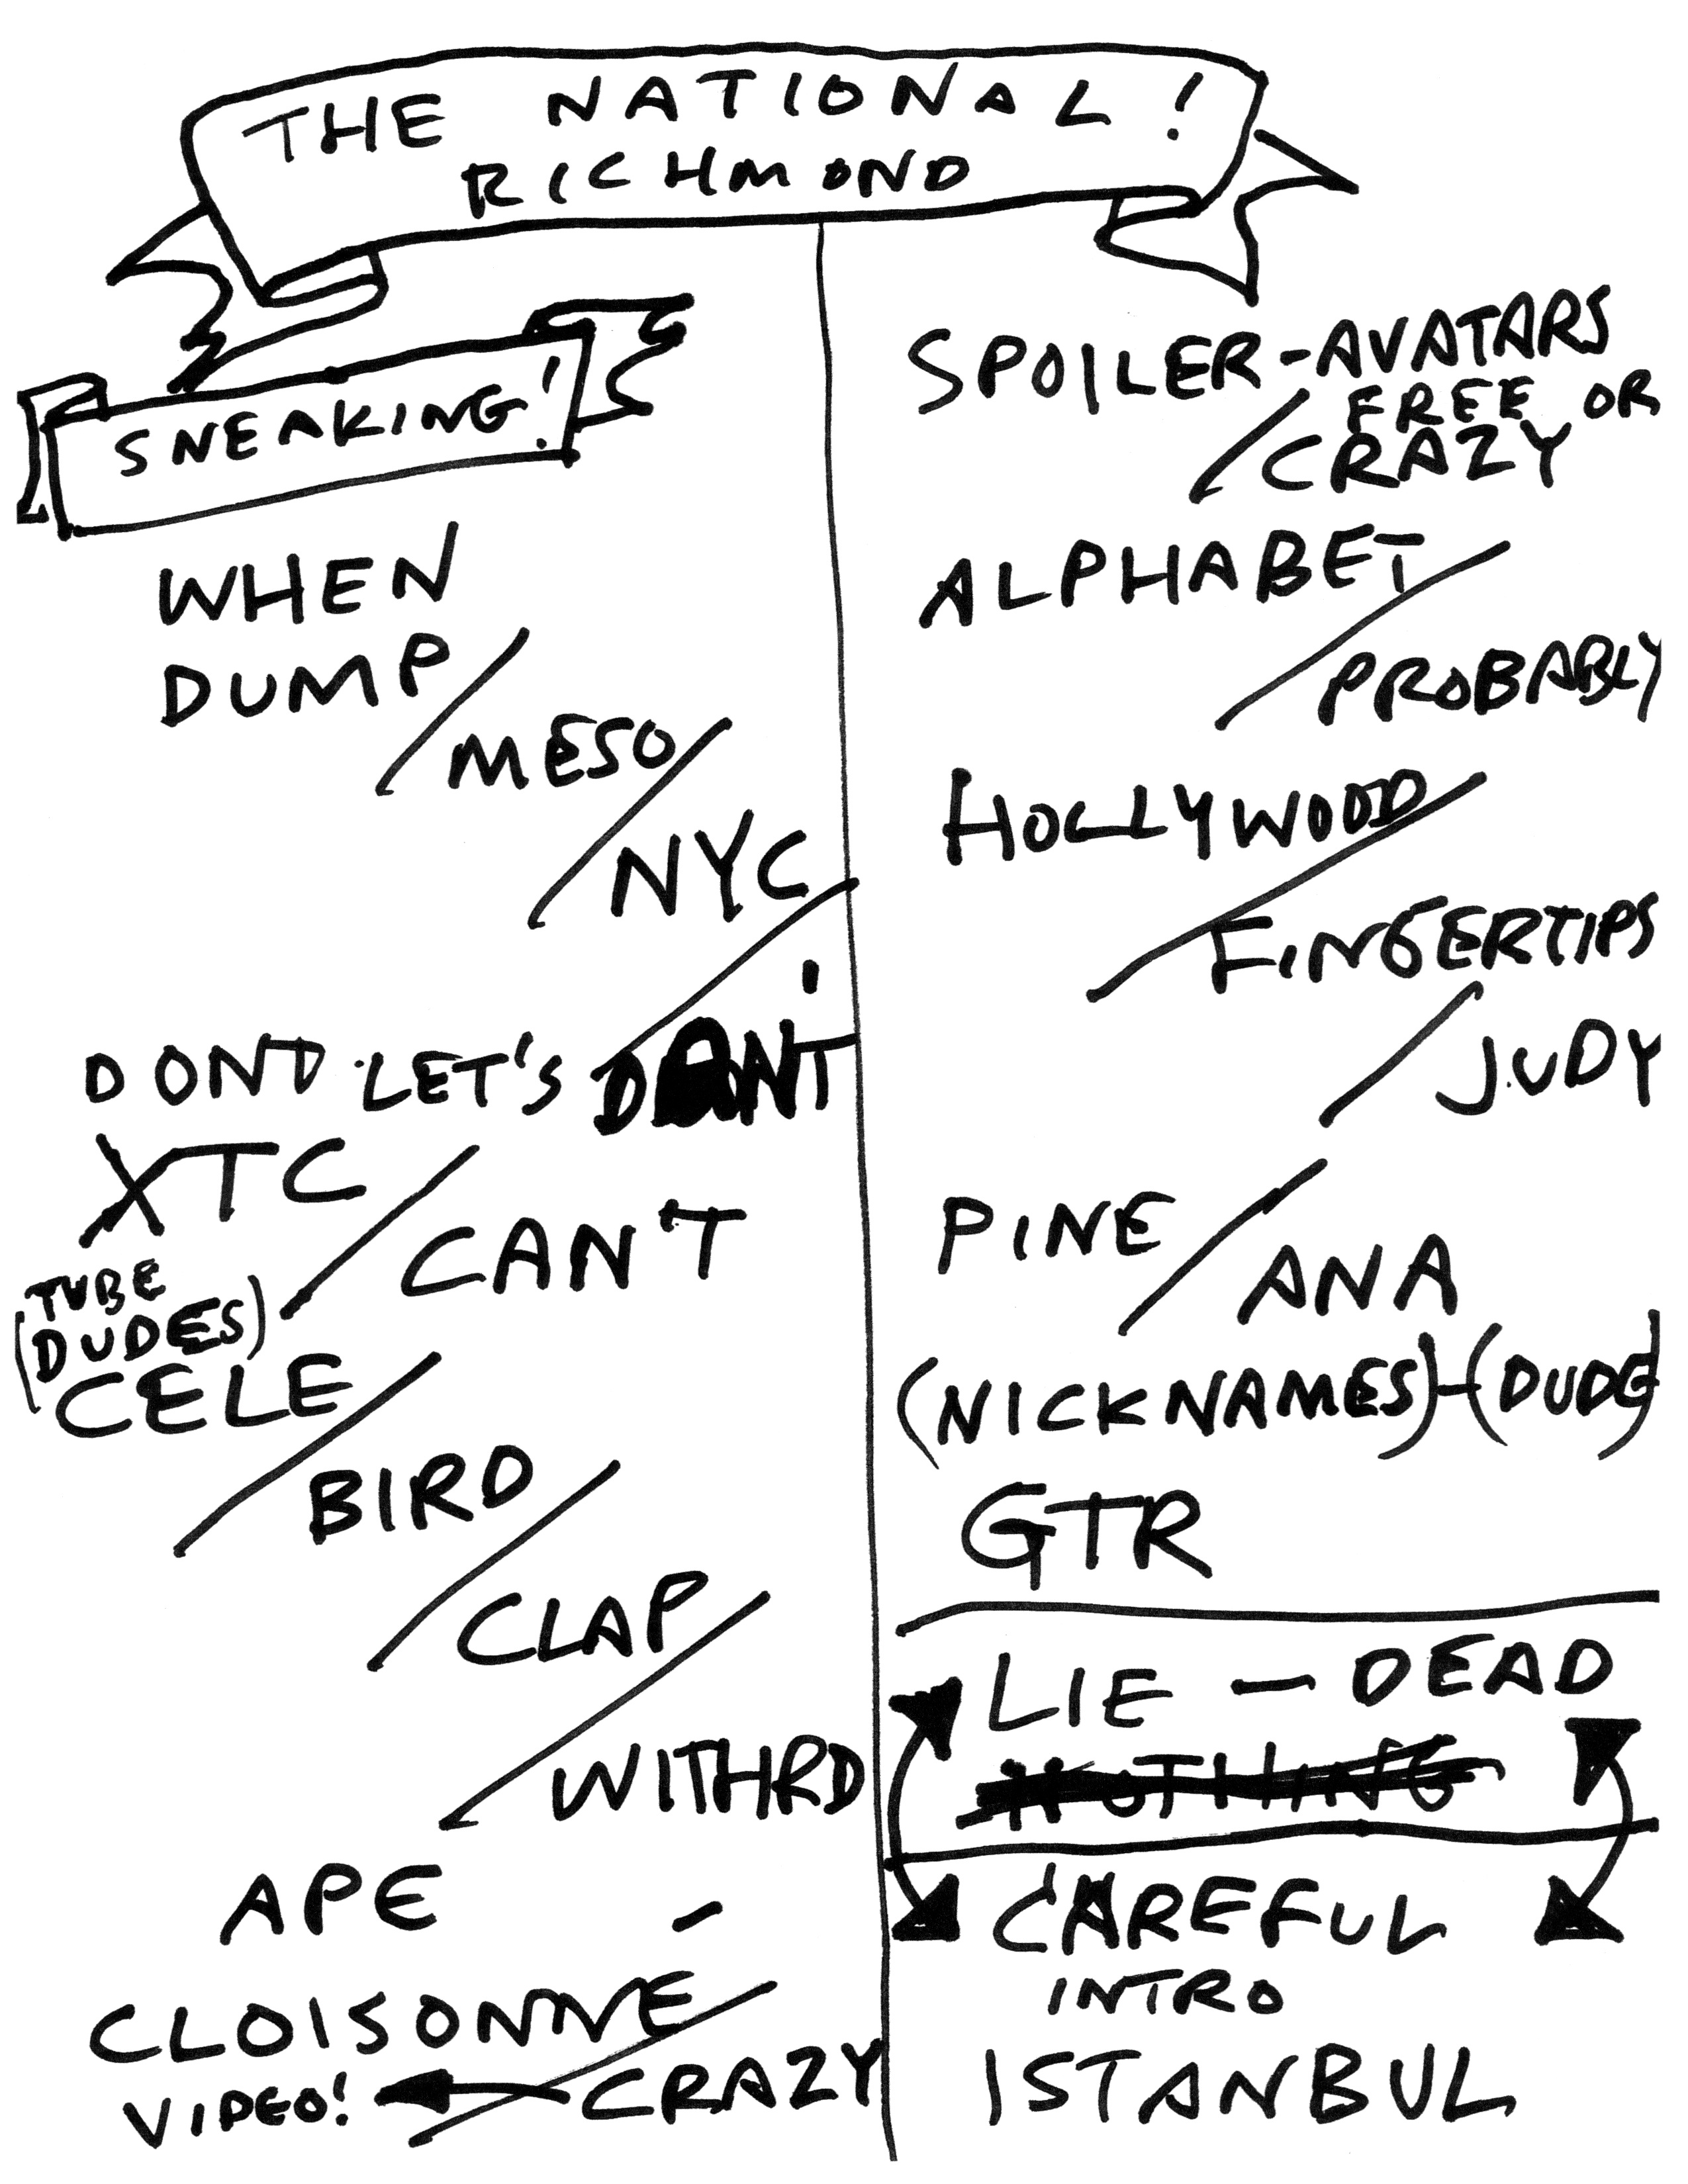 THE NATIONAL!
RICHMOND
SNEAKING!
WHEN
DUMP/
MESO/
NYC/
DOND LET'S
XTC/
CAN'T
(TUBE
DUDES)
CELE/
BIRD/
CLAP/
WITHRD
APE -
CLOISONNE/
VIDEO! CRAZY
SPOILER-AVATARS
/FREE OR
CRAZY
ALPHABET/
PROBABLY
HOLLYWOOD/
FINGERTIPS
/JUDY
PINE/
ANA
(NICKNAMES)-(DUDE)
GTR
LIE - DEAD
NOTHING
CAREFUL
INTRO
ISTANBUL